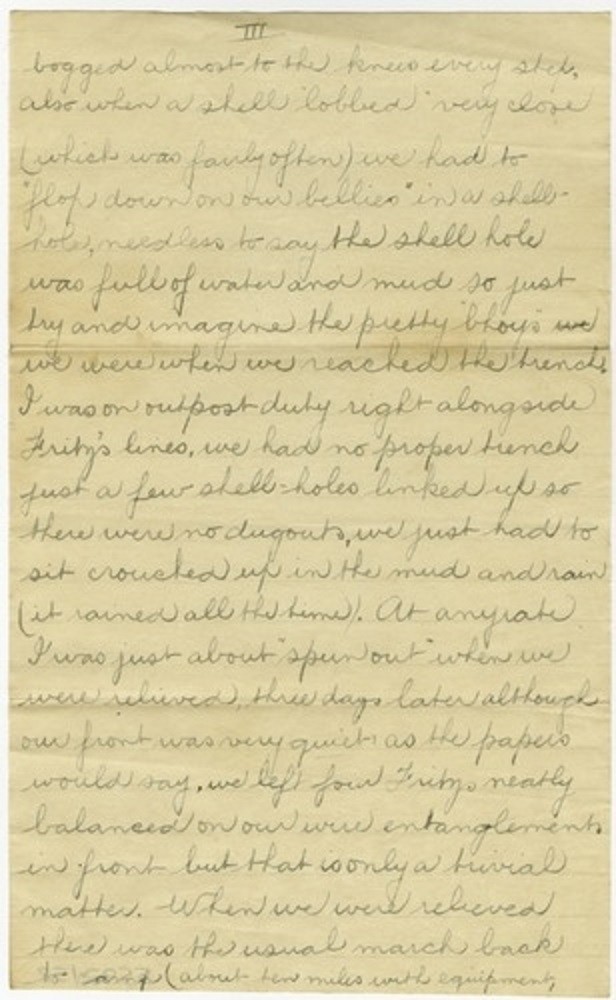 III
bogged almost to the knees every step,
also when a shell "lobbed" very close
(which was fairly often) we had to
"flop down on our bellies" in a shell-
hole, needless to say the shell hole
was full of water and mud so just
try and imagine the pretty "bhoys" we
we were when we reached the trench.
I was on outpost duty right alongside
Fritz's lines, we had no proper trench
just a few shell-holes linked up so
there were no dugouts, we just had to
sit crouched up in the mud and rain
(it rained all the time). At anyrate
I was just about "spun out" when we
were relieved, three days later although
our front was very quiet, as the papers
would say, we left four Fritzs neatly
balanced on our wire entanglements
in front but that is only a trivial
matter. When we were relieved
there was the usual march back
to camp (about ten miles with equipment,